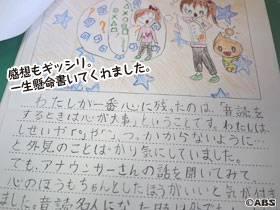 感想もギッシリ。
一生懸命書いてくれました。
わたしが一番心に残ったのは、「音読を
するときは心が大事」ということです。わたしは、
しせいが
つっかからないように…
と外見のことばかり気にしていました。
でも、アナウンサーさんの話を聞いてみて、
心のほうもちゃんとしたほうがいいと気が付き
ました。音読名人になった時は
©ABS